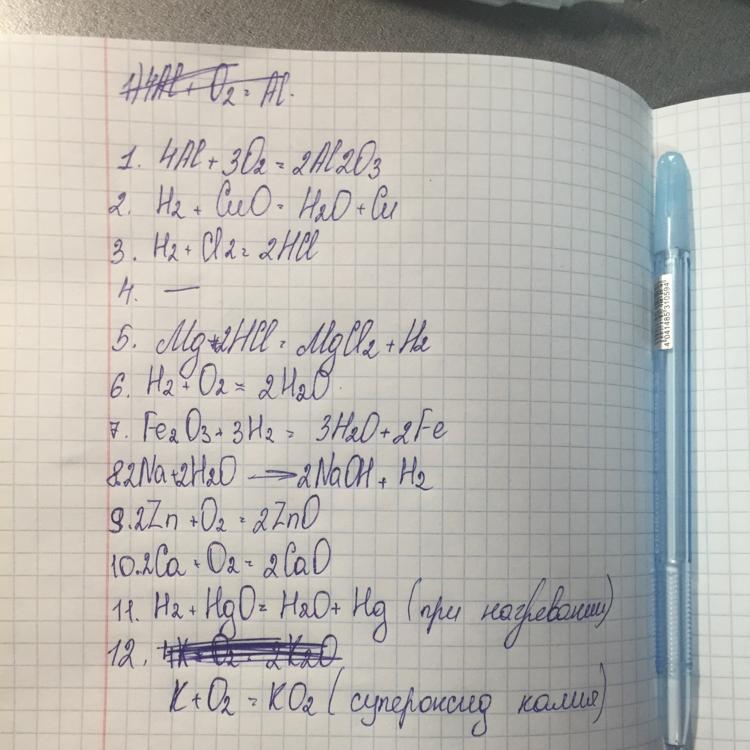 1) 4Al + O2 = Al
1. 4Al + 3O2 = 2Al2O3
2. H2 + CuO = H2O + Cu
3. H2 + Cl2 = 2HCl
4. —
5. Mg + 2HCl = MgCl2 + H2
6. H2 + O2 = 2H2O
7. Fe2O3 + 3H2 = 3H2O + 2Fe
8. 2Na + 2H2O → 2NaOH + H2
9. 2Zn + O2 = 2ZnO
10. 2Ca + O2 = 2CaO
11. H2 + HgO = H2O + Hg (при нагревании)
12. 4K + O2 = 2K2O
K + O2 = KO2 (супероксид калия)
4041485310594